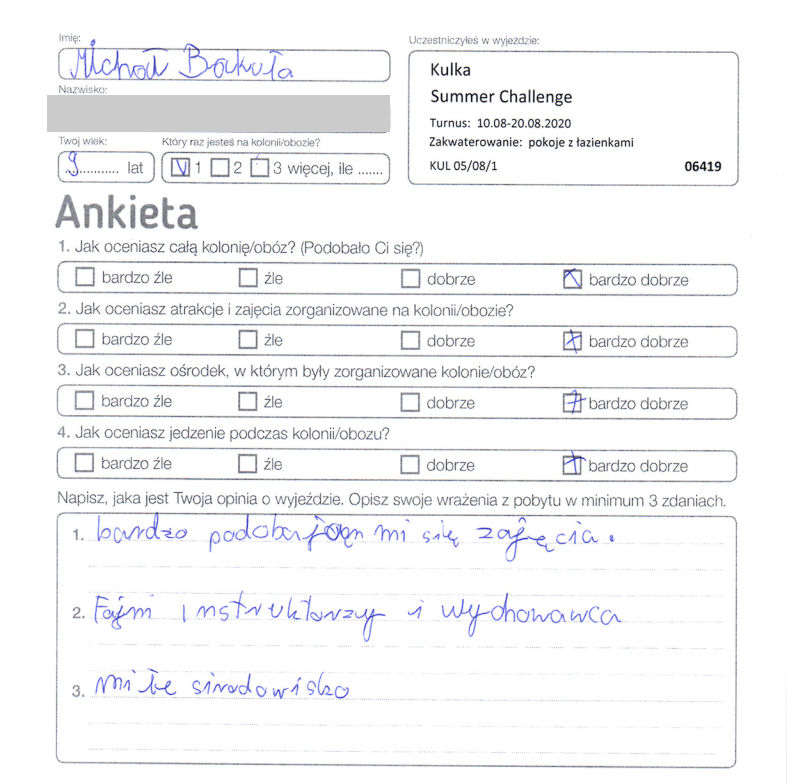 Imię:
Michał Bakuła
Nazwisko:
Twój wiek:
9........... lat
Który raz jesteś na kolonii/obozie?
1 2 3 więcej, ile .......
Uczestniczyłeś w wyjeździe:
Kulka
Summer Challenge
Turnus: 10.08-20.08.2020
Zakwaterowanie: pokoje z łazienkami
KUL 05/08/1 06419
Ankieta
1. Jak oceniasz całą kolonię/obóz? (Podobało Ci się?)
bardzo źle źle dobrze bardzo dobrze
2. Jak oceniasz atrakcje i zajęcia zorganizowane na kolonii/obozie?
bardzo źle źle dobrze bardzo dobrze
3. Jak oceniasz ośrodek, w którym były zorganizowane kolonie/obóz?
bardzo źle źle dobrze bardzo dobrze
4. Jak oceniasz jedzenie podczas kolonii/obozu?
bardzo źle źle dobrze bardzo dobrze
Napisz, jaka jest Twoja opinia o wyjeździe. Opisz swoje wrażenia z pobytu w minimum 3 zdaniach.
1. bardzo mi się zajęcia.
2. Fajni instruktorzy i wychowawca
3. miłe sirodowisko